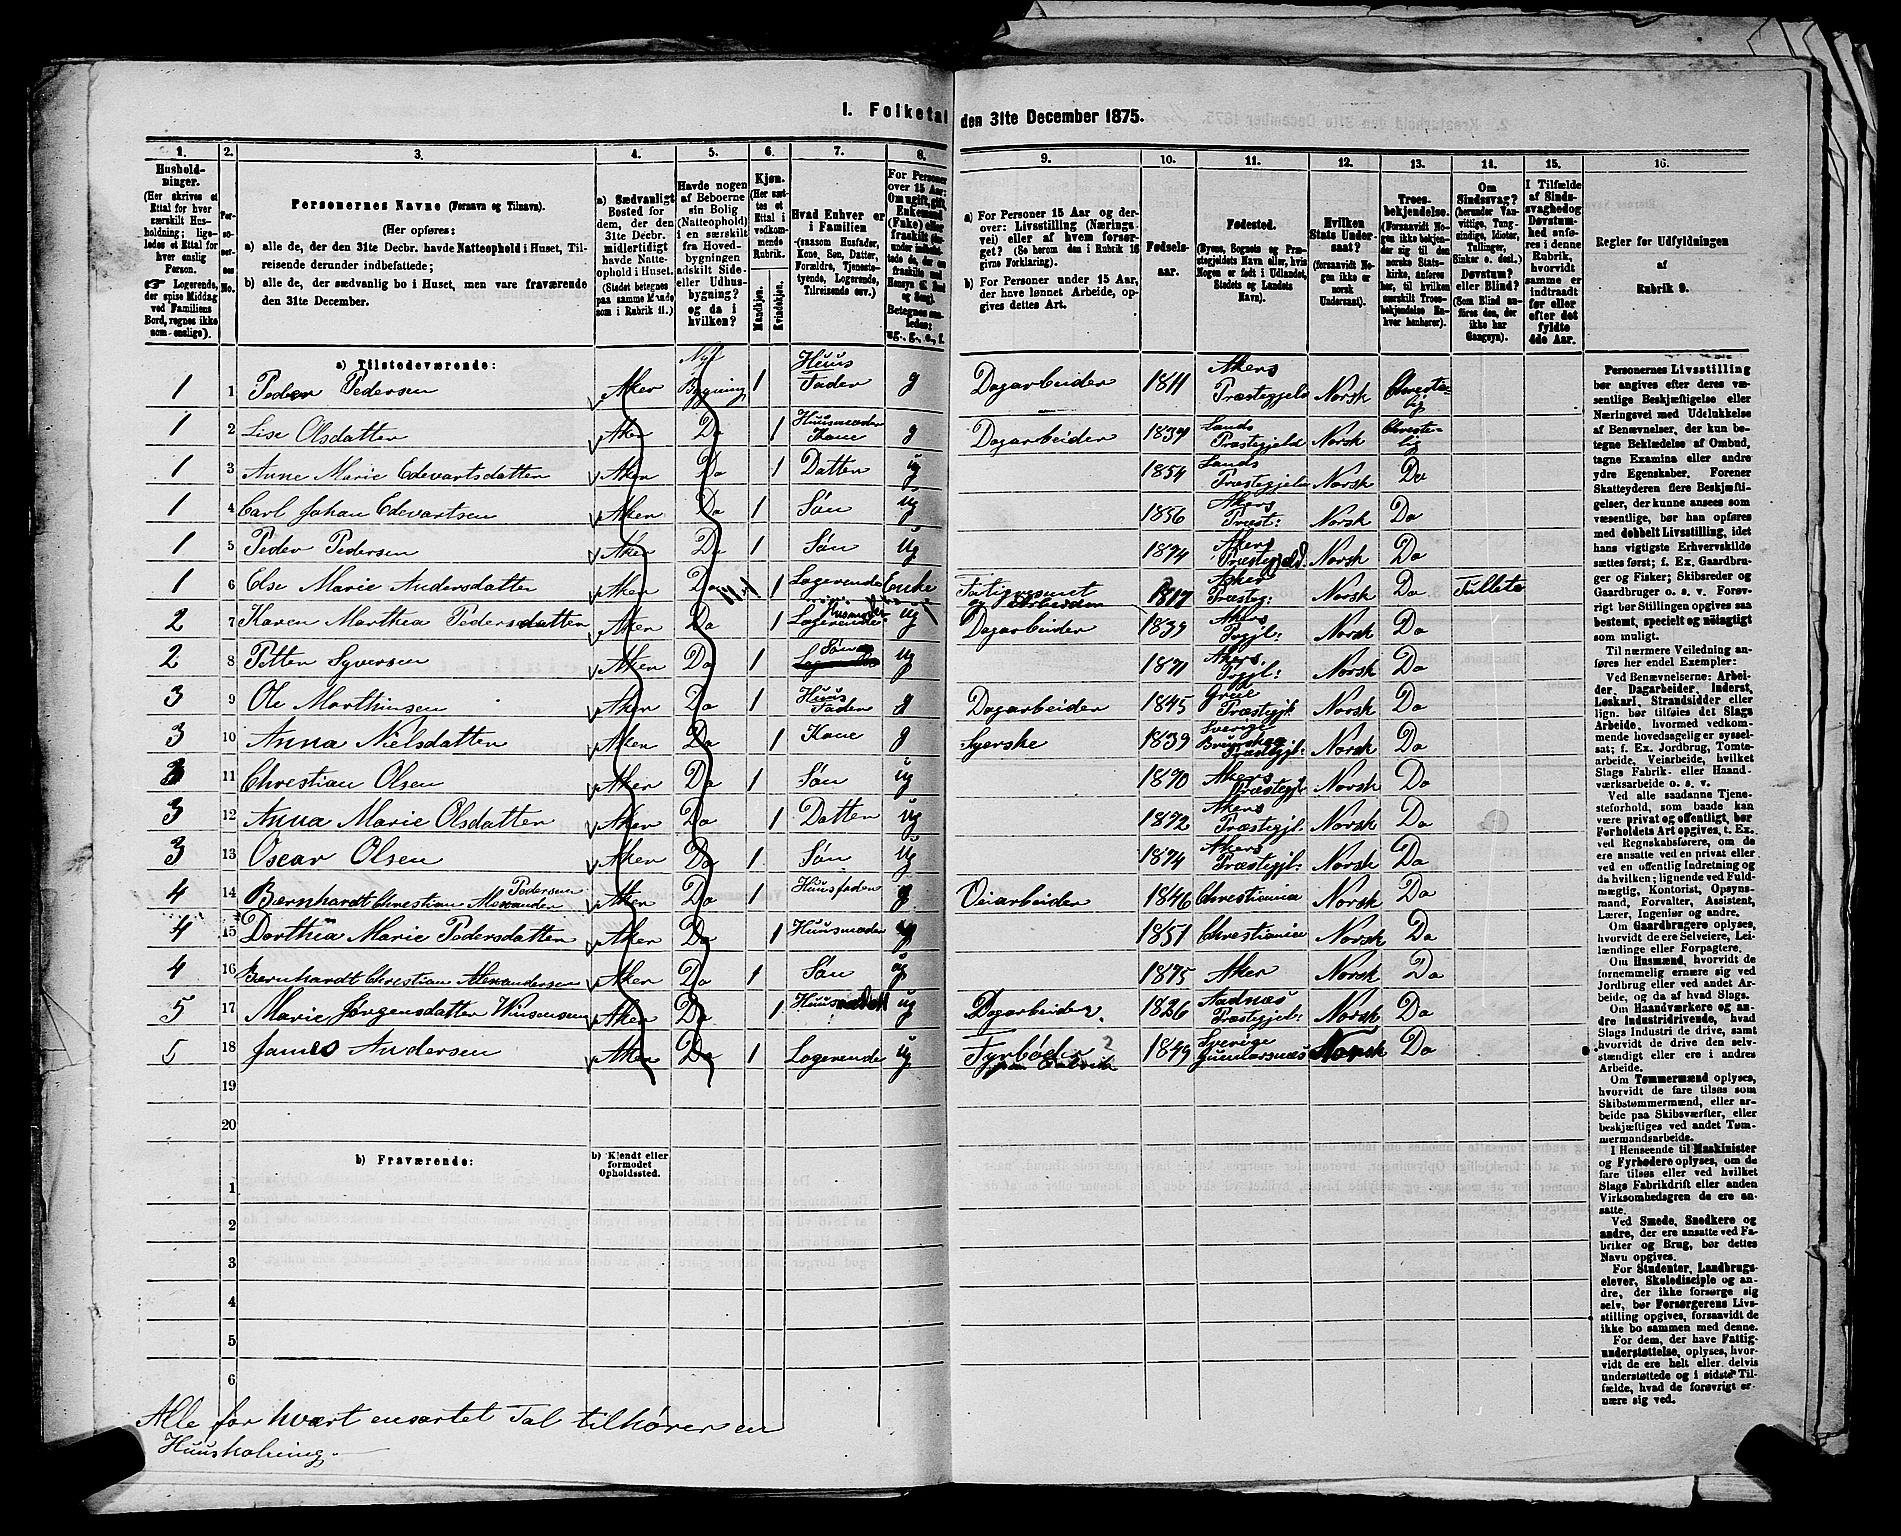 I. Folketal den 31te December 1875.
1. 2. 3. 4. 5. 6. 7. 8. 9. 10. 11. 12. 13. 14. 15. 16.
Husholdninger.
(Her skrives et
Ettal for hver
særskilt Hus-
holdning; lige-
ledes et Ettal for
hver enslig
Person.
☞ Logerende,
der spise Middag
ved Familiens
Bord, regnes ikke
som enslige).
Personernes No.
Personernes Navne (Fornavn og Tilnavn).
(Her opføres:
a) alle de, der den 31te Decbr. havde Natteophold i Huset, Til-
reisende derunder indbefattede;
b) alle de, der sædvanlig bo i Huset, men vare fraværende
den 31te December.
a) Sædvanligt
Bosted for
dem, der den
31te Decbr.
midlertidigt
havde Natte-
ophold i Huset.
(Stedet betegnes
paa samme Maade
som i Rubrik 11.)
Havde nogen
af Beboerne
sin Bolig
(Natteophold)
i en særskilt
fra Hoved-
bygningen
adskilt Side-
eller Udhus-
bygning?
og da i
hvilken?
Kjøn.
(Her sæt-
tes et
Ettal i
vedkom-
mende
Rubrik.
Mandkjøn.
Kvindekjøn.
Hvad Enhver er
i Familien
(saasom Husfader,
Kone, Søn, Datter,
Forældre, Tjeneste-
tyende, Logerende,
Tilreisende osv.)
For Personer
over 15 Aar:
Om ugift, gift,
Enkemand
(Enke) eller
fraskilt
Betegnes saa-
ledes:
ug., g., e., f.
a) For Personer 15 Aar og der-
over: Livsstilling (Nærings-
vei) eller af hvem forsør-
get? (Se herom den i Rubrik 16
givne Forklaring).
b) For Personer under 15 Aar,
der have lønnet Arbeide, op-
gives dettes Art.
Fødsels-
aar.
Fødested.
(Byens, Sognets og Præ-
stegjeldets Navn eller, hvis
Nogen er født i Udlandet,
Stedets og Landets
Navn).
Hvilken
Stats Under-
saat?
(forsaavidt No-
gen ikke er
norsk
Undersaat).
Troes-
bekjendelse.
(Forsaavidt No-
gen ikke bekjen-
der sig til den
norske Stats-
kirke, anføres
her, til hvilken
særskilt Troes-
bekjendelse En-
hver henhører).
Om
Sindssvag?
(herunder Van-
vittige, Tung-
sindige, Idioter,
Tullinger,
Sinker o. desl.)
Døvstum?
eller Blind?
(Som Blind an-
føres den, der
ikke har
Gangsyn).
I Tilfælde
af Sinds-
svaghed og
Døvstum-
hed anfø-
res i denne
Rubrik,
hvorvidt
samme er
indtraadt
før eller
efter det
fyldte
4de Aar.
Regler for Udfyldningen
af
Rubrik 9.
a) Tilstedeværende:
1 1 Peder Pedersen Aker Nyt Bygning 1 Huus Fader g Dagarbeider 1811 Akers Præstegjeld Norsk Christelig
1 2 Lise Olsdatter Aker Do 1 Huusmoder Kone g Dagarbeider 1831 Lands Præstegjeld Norsk Christelig
1 3 Anne Marie Edevartsdatter Aker Do 1 Datter ug 1854 Lands Præstegjeld Norsk Do
1 4 Carl Johan Edevartsen Aker Do 1 Søn ug 1856 Akers Præst: Norsk Do
1 5 Peder Pedersen Aker Do 1 Søn ug 1874 Akers Præstegjeld. Norsk Do
1 6 Else Marie Andersdatter Aker Do 1 Logerende Enke Fatigvæsnet 1817 Asker Præsteg: Norsk Do Tullete
2 7 Karen Marthea Pedersdatter Aker Do 1 Logerende Husmoder ug Dagarbeider 1839 Akers Prgjl: Norsk Do
2 8 Petter Syversen Aker Do 1 Søn ug 1871 Akers Prgjl: Norsk Do
3 9 Ole Marthinsen Aker Do 1 Huus Fader g Dagarbeider 1845 Præstegjl. Norsk Do
3 10 Anna Nielsdatter Aker Do 1 Kone g Syerske 1839 Sverige Præstegjl: Norsk Do
3 11 Christian Olsen Aker Do 1 Søn ug 1870 Akers Præstegjl: Norsk Do
3 12 Anna Marie Olsdatter Aker Do 1 Datter ug 1872 Akers Præstegjl: Norsk Do
3 13 Oscar Olsen Aker Do 1 Søn ug 1874 Akers Præstegjl: Norsk Do
4 14 Bærnhardt Christian Alexander Pedersen Aker Do 1 Huusfader g Veiarbeider 1846 Christiania Norsk Do
4 15 Dorthea Marie Pedersdatter Aker Do 1 Huusmoder g 1851 Christiania Norsk Do
4 16 Bernhardt Christian Alexandersen Aker Do 1 Søn ug 1875 Aker Norsk Do
5 17 Marie Jørgensdatter Aker Do 1 ug Dagarbeider. 1826 Aadnæs Præstegjel: Norsk Do
5 18 Andersen Aker Do 1 Logerende ug Fyrbøder 1849 Sverige Gunnarsnæs Norsk Do
19
20
b) Fraværende:
b) Kjendt eller
formodet
Opholdssted.
1
2
3
4
5
6
Alle for hvært ensartet Tal tilhører en
Huusholning.
Personernes Livsstilling
bør angives efter deres væ-
sentlige Beskjæftigelse eller
Næringsvei med Udelukkelse
af Benævnelser, der kun be-
tegne Beklædelse af Ombud,
tagne Examina eller andre
ydre Egenskaber. Forener
Skatteyderen flere Beskjæfti-
gelser, der kunne ansees som
væsentlige, bør han opføres
med dobbelt Livsstilling, idet
hans vigtigste Erhvervskilde
sættes først; f. Ex. Gaardbru-
ger og Fisker; Skibsreder og
Gaardbruger o. s. v. Forøv-
rigt bør Stillingen opgives saa
bestemt, specielt og nøiagtigt
som muligt.
Til nærmere Veiledning an-
føres her endel Exempler:
Ved Benævnelserne: Arbei-
der, Dagarbeider, Inderst,
Løskarl, Strandsidder eller
lign. bør tilføies det Slags
Arbeide, hvormed vedkom-
mende hovedsagelig er syssel-
sat; f. Ex. Jordbrug, Tomte-
arbeide, Veiarbeide, hvilket
Slags Fabrik- eller Haand-
værksarbeide o. s. v.
Ved alle saadanne Tjene-
steforhold, som baade kan
være privat og offentligt, bør
Forholdets Art opgives, t. Ex.
ved Regnskabsførere, om de
ere ansatte ved en privat eller
ved en offentlig Indretning og
da hvilken; lignende ved Fuld-
mægtig, Kontorist, Opsyns-
mand, Forvalter, Assistent,
Lærer, Ingeniør og andre.
Om Gaardbrugere oplyses,
hvorvidt de ere Selveiere, Lei-
lændinge eller Forpagtere.
Om Husmænd, hvorvidt de
fornemmelig ernære sig ved
Jordbrug eller ved andet Ar-
beide, og da af hvad Slags.
Om Haandværkere og an-
dre Industridrivende, hvad
Slags Industri de drive, samt
hvorvidt de drive den selv-
stændigt eller ere i andres
Arbeide.
Om Tømmermænd oplyses,
hvorvidt de fare tilsøs som
Skibstømmermænd, eller ar-
beide paa Skibsværfter, eller
beskjæftiges ved andet Tøm-
mermandsarbeide.
I Henseende til Maskinister
og Fyrbødere oplyses, om de
fare tilsøs eller ved hvilket
Slags Fabrikdrift eller anden
Virksomhedsgren de ere an-
satte.
Ved Smede, Snedkere og
andre, der ere ansatte ved Fa-
briker og Brug, bør dettes
Navn opgives.
For Studenter, Landbrugs-
elever, Skoledisciple og an-
dre, der ikke forsørge sig
selv, bør Forsørgerens Livs-
stilling opgives, forsaavidt de
ikke bo sammen med denne.
For dem, der have Fattig-
understøttelse, oplyses, hvor-
vidt de ere helt eller delvis
understøttede og i sidste Til-
fælde, hvad de forøvrigt er-
nære sig ved.